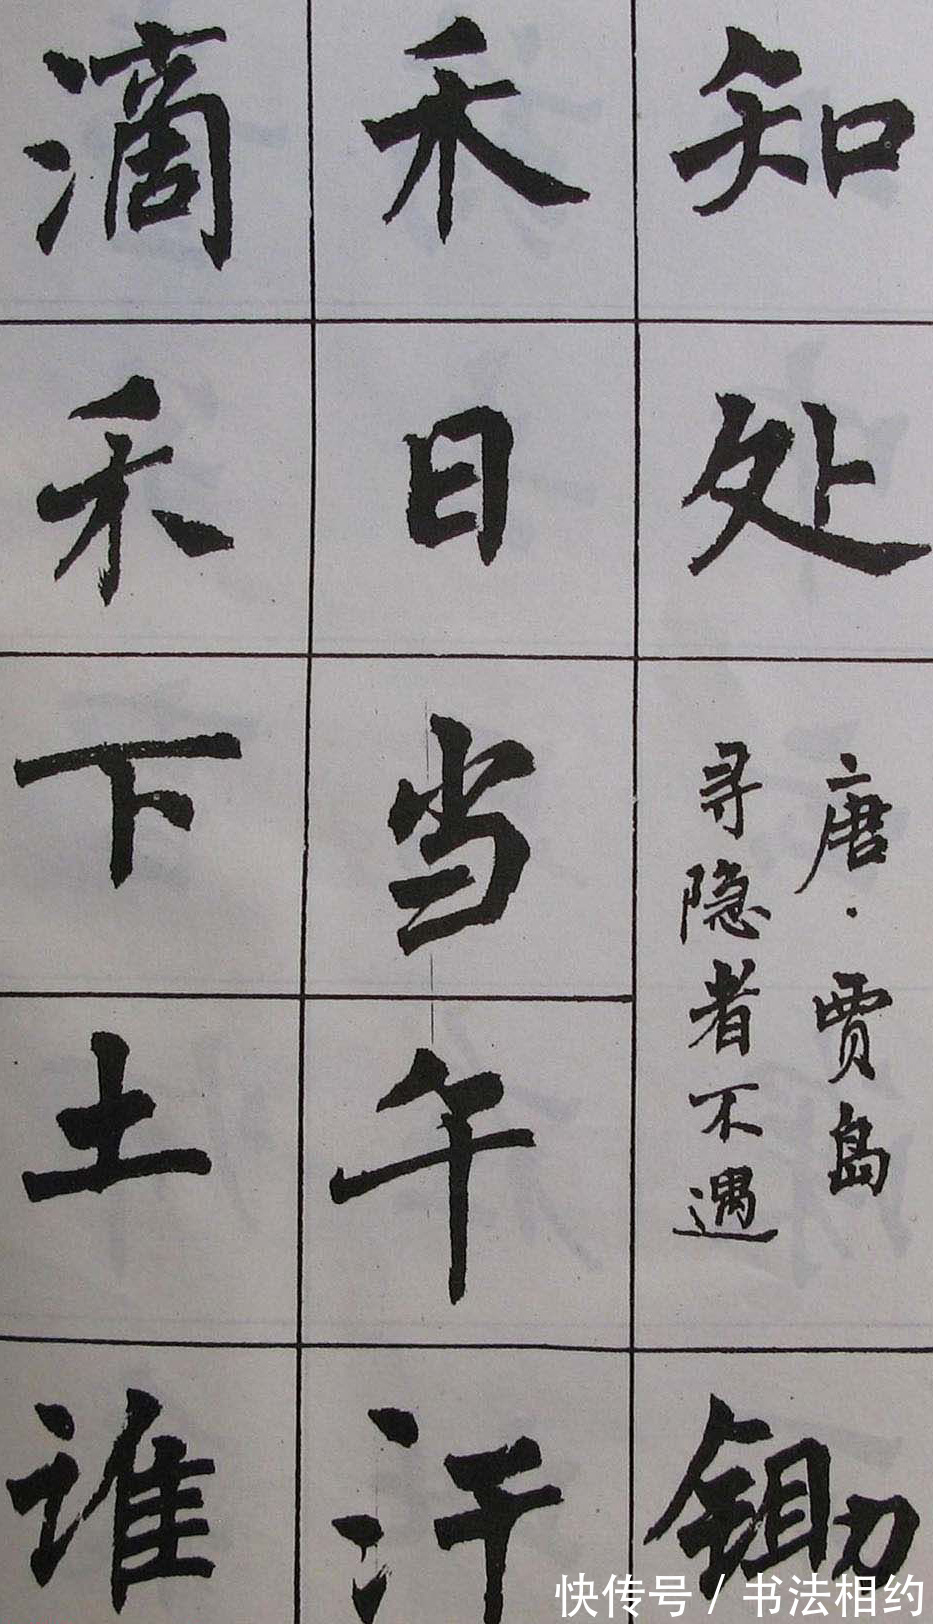 知处
唐·贾岛
寻隐者不遇
锄
禾日当午汗
滴禾下土谁
快传号/书法相约